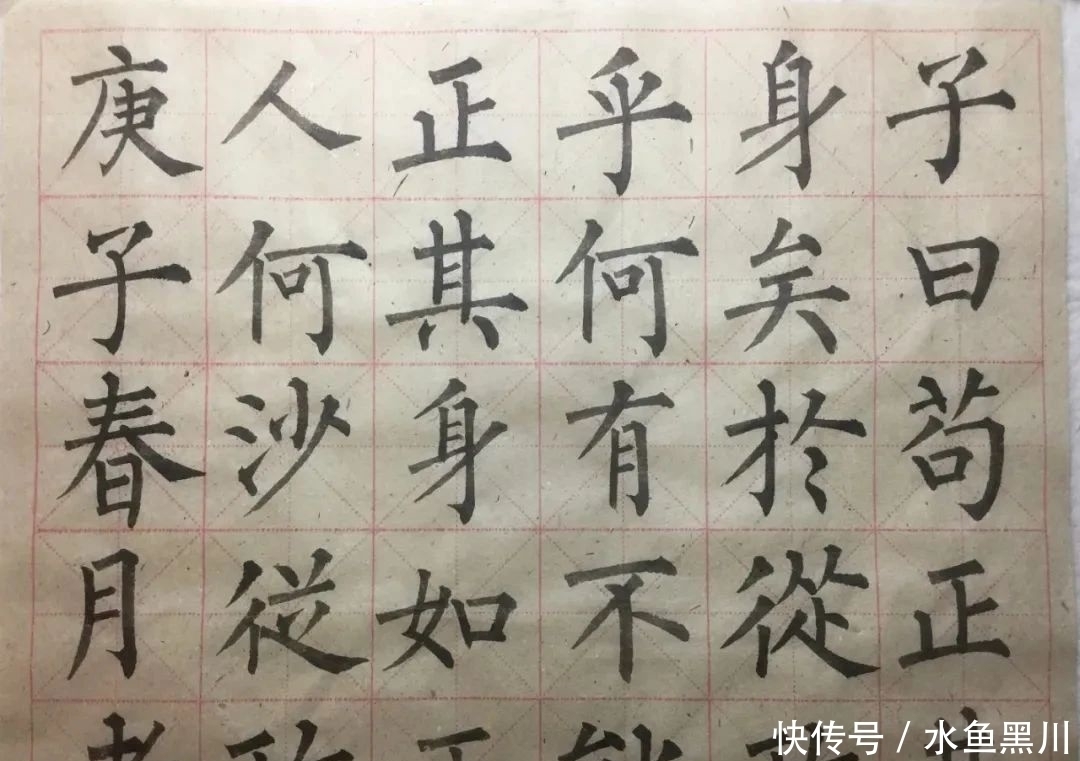 子曰苟正
身矣於從
乎何有不
正其身如
人何沙従
庚子春月
快传号 / 水鱼黑川